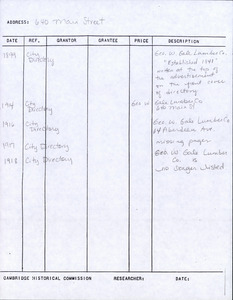 ADDRESS: 640 Main Street
DATE REF. GRANTOR GRANTEE PRICE DESCRIPTION
1899 City Directory Geo. W. Gale Lumber Co.
"Established 1841"
under at the top of
the advertisement
on the front cover
of directory
City Directory Geo W Gale Lumber Co
640 Main St
1916 City Directory Geo. W. Gale Lumber Co
Ave
1917 City Directory missing pages
1918 City Directory Geo. W Gale Lumber
Co. is
no longer listed
CAMBRIDGE HISTORICAL COMMISSION RESEARCHER: DATE: